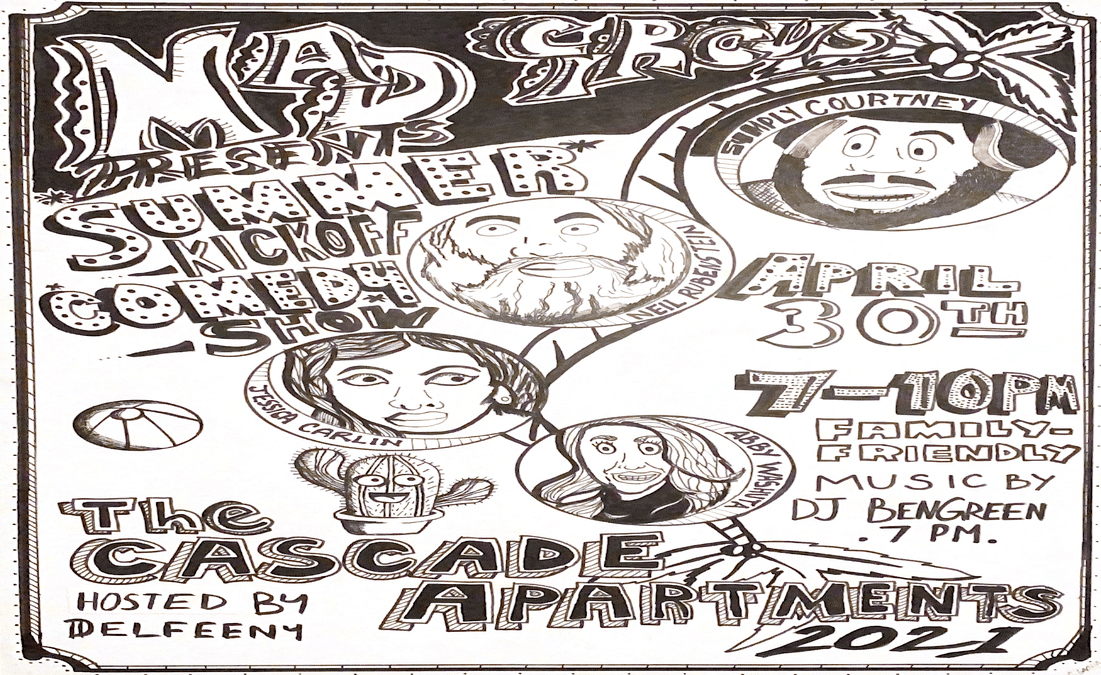 MAD CIRCUS
PRESENTS
SUMMER
KICKOFF
COMEDY
SHOW
SIMPLY COURTNEY
NEIL RUBENSTEIN
JESSICA CARLIN
ABBY WASHUTA
APRIL
30TH
7-10PM
FAMILY-
FRIENDLY
MUSIC BY
DJ BENGREEN
.7 PM.
The
CASCADE
APARTMENTS
HOSTED BY
DELFEENY
2021